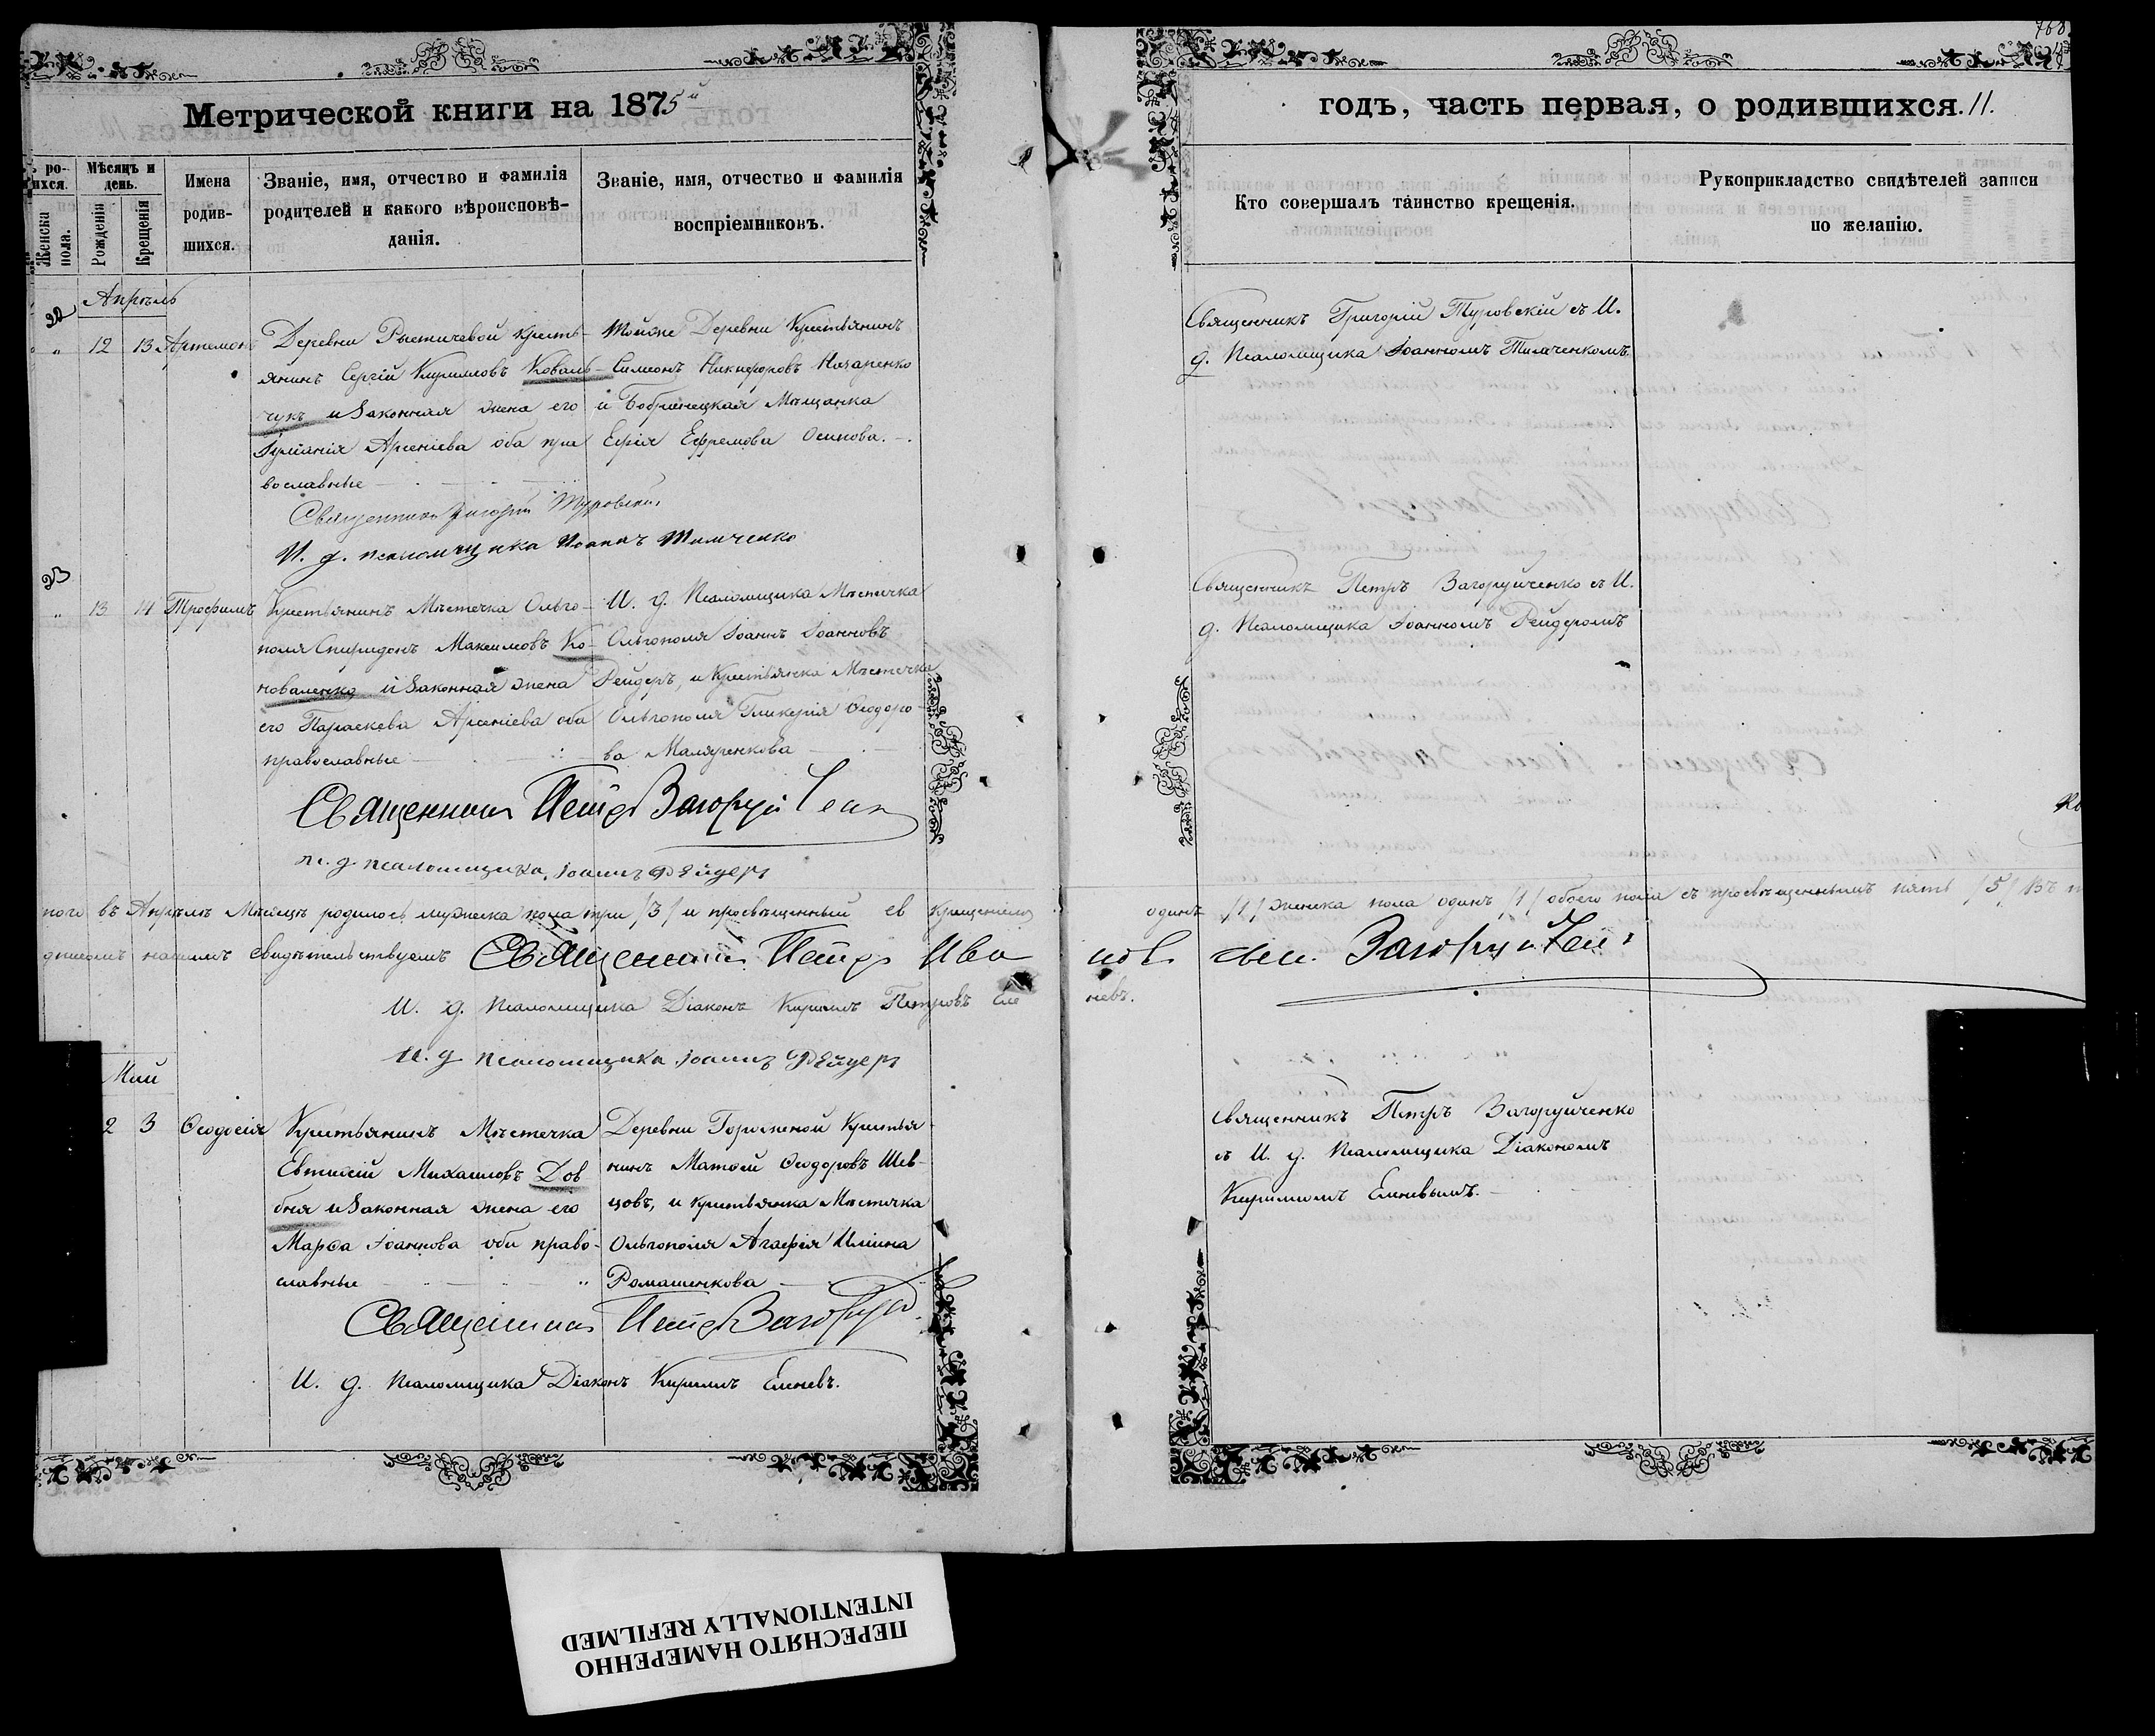 768
Метрической книги на 1875й
годъ, часть первая, о родившихся. 11.
ро-
ихся.
Женска
пола.
Мѣсяцъ и
день.
Рожденія
Крещенія
Имена
родив-
шихся.
Званіе, имя, отчество и фамилія
родителей и какого вѣроисповѣ-
данія.
Званіе, имя, отчество и фамилія
воспріемниковъ.
Кто совершалъ таинство крещенія.
Рукоприкладство свидѣтелей записи
по желанію.
Апрѣль
22
„ 12 13 Артемонъ
Деревни крестъ-
янинъ Сергій Кирилловъ Коваль-
чукъ и Законная жена его
Арсеніева оба пра
вославные
Тойже Деревни Крестьянинъ
Симеонъ Никифоровъ Назаренко
и Бобринецкая Мѣщанка
Ефремова Осипова.
Священникъ Григорій Туровскій съ И.
д. Псаломщика Іоанномъ Тимченкомъ.
Священникъ Григорій Туровскій
И. д. псаломщика Иоаннъ Тимченко
23
„ 13 14 Трофимъ
Крестьянинъ Мѣстечка Ольго-
поля Спиридонъ Максимовъ Ко-
новаленко и Законная жена
его Параскева Арсеніева оба
православные
И. д. Псаломщика Мѣстечка
Ольгополя Іоаннъ Іоанновъ
Рейдеръ, и Крестьянка Мѣстечка
Ольгополя Гликерія Ѳеодоро-
ва Маляренкова
Священникъ Петръ Загоруйченко съ И.
д. Псаломщика Іоанномъ Рейдеромъ
Священникъ Петръ Загоруйченк
И. д псаломщика Іоаннъ Рейдеръ
ного въ Апрѣлѣ Мѣсяцѣ родилось мужеска пола три /3/ и просвѣщенный св Крещеніемъ одинъ /1/ женска пола одинъ /1/ обоего пола съ просвѣщеннымъ пять /5/ Въ
нашимъ свидѣтельствуемъ Священникъ Петръ Ива новъ Загоруйчен
И. д. Псаломщика Діаконъ Кириллъ Петровъ Еле невъ.
И. д псаломщика Іоаннъ Рейдеръ
Май
2 3 Ѳеодосія
Крестьянинъ Мѣстечка
Евтихій Михаиловъ Дов
бня и Законная жена его
Марѳа Іоаннова оба право-
славные
Деревни Гороженой Крестья-
нинъ Матѳей Ѳеодоровъ Шев-
цовъ, и крестьянка Мѣстечка
Ольгополя Агафія Иліина
Ромашенкова
Священникъ Петръ Загоруйченко
съ И. д. Псаломщика Діакономъ
Кирилломъ Еленевымъ.
Священникъ Петръ Загоруй
И. д. Псаломщика Діаконъ Кириллъ Еленевъ.
ПЕРЕСНЯТО НАМЕРЕННО
INTENTIONALLY REFILMED